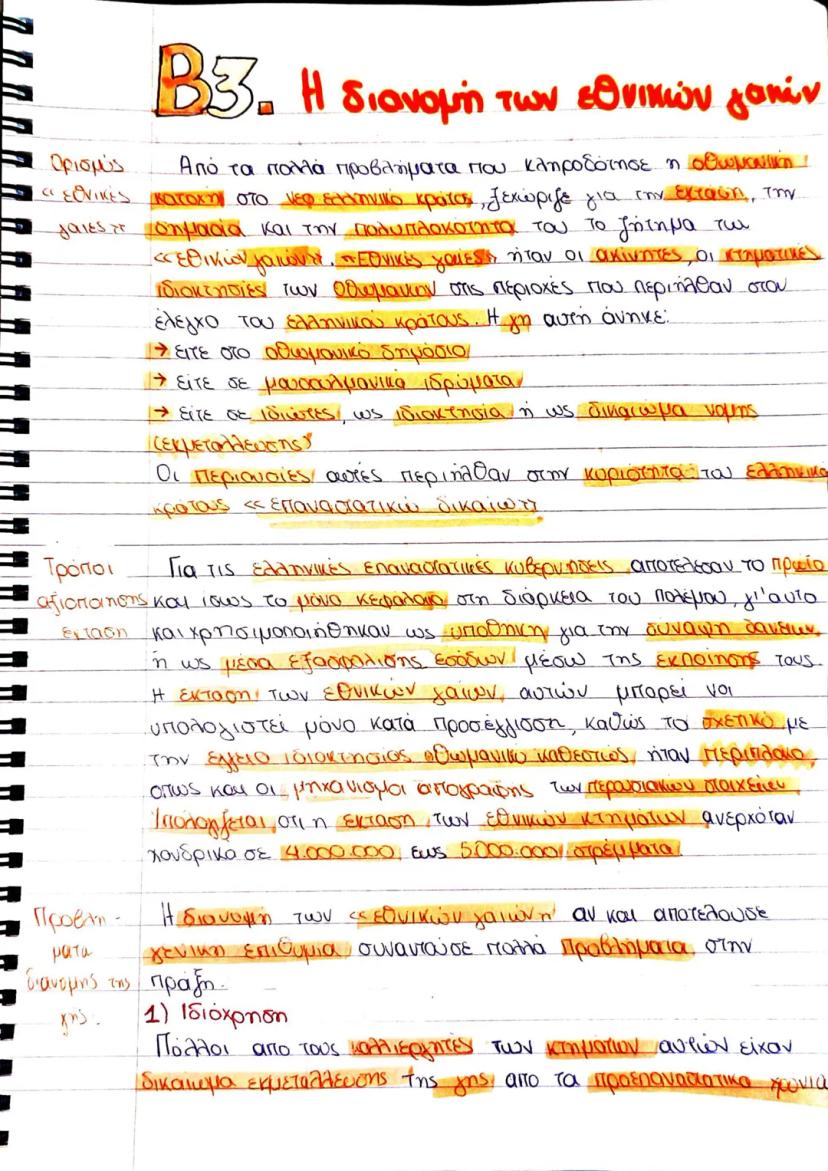 Β3. Η διανομή των εθνικών γαιών
Ορισμός
«εθνικές
γαίες»
Από τα πολλά προβλήματα που κληροδότησε η οθωμανική
κατοχή στο νέο ελληνικό κράτος, ξεχώριζε για την έκταση, την
σημασία και την πολυπλοκότητα του το ζήτημα των
«εθικών γαιών». «Εθνικές γαίες» ήταν οι ακίνητες, οι κτηματικές
ιδιοκτησίες των Οθωμανών στις περιοχές που περιήλθαν στον
έλεγχο του ελληνικού κράτους. Η γη αυτή άνηκε:
→ είτε στο οθωμανικό δημόσιο
→ είτε σε μουσουλμανικά ιδρύματα
→ είτε σε ιδιώτες, ως ιδιοκτησία ή ως δικαίωμα νομής
(εκμετάλλευσης)
Οι περιουσίες αυτές περιήλθαν στην κυριότητα του ελληνικό
κράτους «επαναστατικώ δικαίω»
Τρόποι
αξιοποίησης
έκταση
Για τις ελληνικές επαναστατικές κυβερνήσεις αποτέλεσαν το πρώτο
και ίσως το μόνο κεφάλαιο στη διάρκεια του πολέμου, γι'αυτο
και χρησιμοποιήθηκαν ως υποθήκη για την σύναψη δανείων,
ή ως μέσα εξασφάλισης εσόδων μέσω της εκποίησης τους.
Η έκταση των εθνικών γαιών, αυτών μπορεί να
υπολογιστεί μόνο κατά προσέγγιση, καθώς το σχετικό με
την έγγειο ιδιοκτησίας οθωμανικό καθεστώς, ήταν περίπλοκο,
όπως και οι μηχανισμοί απογραφής των περουσιακών στοιχείων
Υπολογίζεται, οτι η έκταση των εθνικών κτημάτων ανερχόταν
χονδρικά σε 4.000.000 έως 5.000.000 στρέμματα.
Προβλή-
ματα
διανομής της
γης.
Η διανομή των «εθνικών γαιών» αν και αποτελούσε
γενική επιθυμία συναντούσε πολλά προβλήματα στην
πράξη.
1) Ιδιόχρηση
Πόλλοι απο τους καλλιεργητές των κτημάτων αυτών είχαν
δικαίωμα εκμετάλλευσης της γης απο τα προεπαναστατικά χρόνια